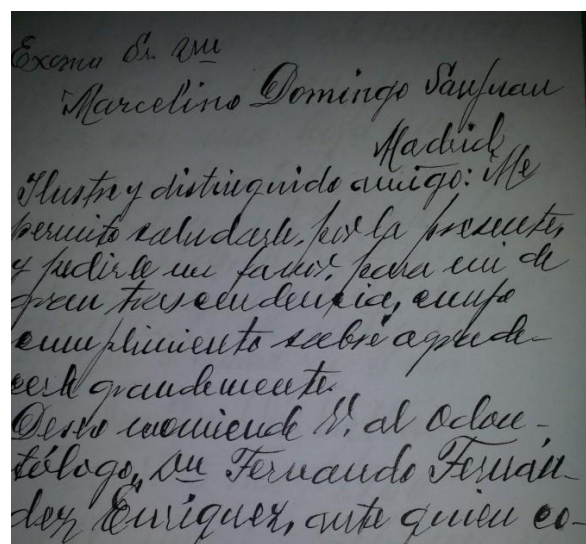 Excmo Sr. Dn
Marcelino Domingo Sanjuan
Madrid
Ilustre y distinguido amigo: Me
permito saludarle, por la presente,
y pedirle un favor, para mi de
gran trascendencia, cuyo
cumplimiento sabré agrade-
cerle grandemente.
Deseo recomiende V. al Odon-
tólogo, Dn Fernando Fernán-
dez Enríquez, ante quien co-